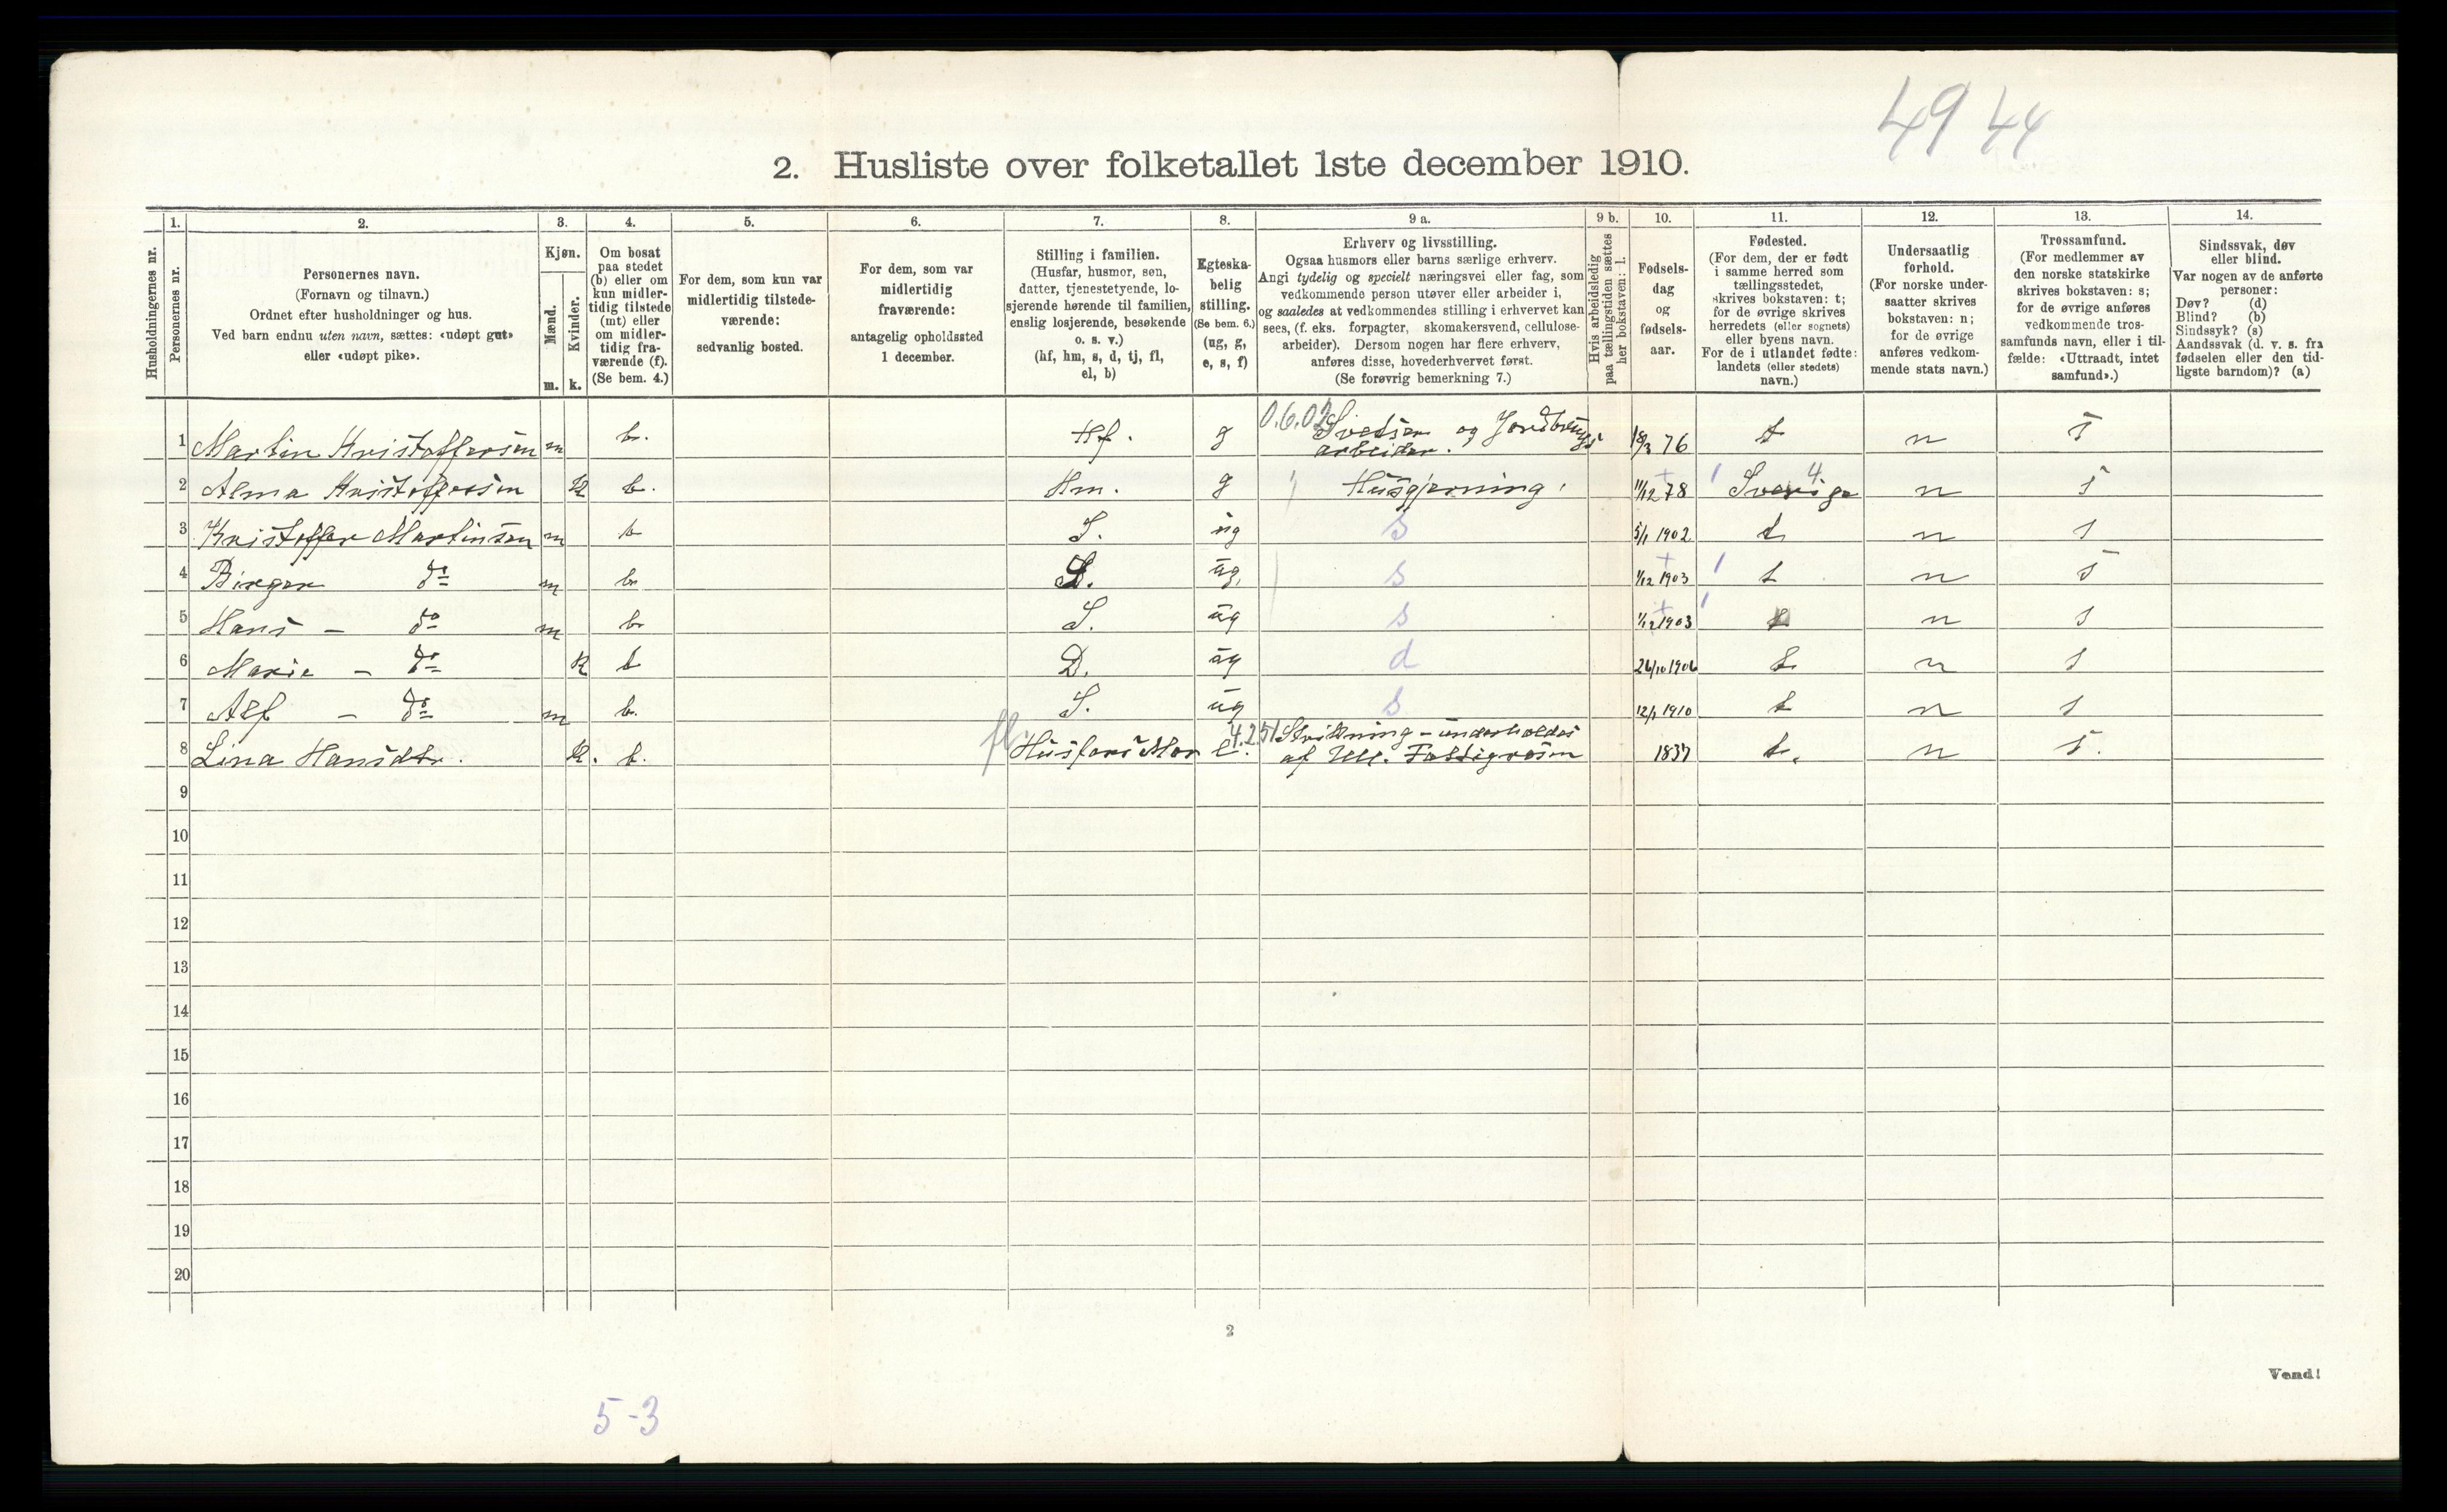 49 44
2. Husliste over folketallet 1ste december 1910.
Husholdningernes nr.
1.
Personernes nr.
2.
Personernes navn.
(Fornavn og tilnavn.)
Ordnet efter husholdninger og hus.
Ved barn endnu uten navn, sættes: «udøpt gut»
eller «udøpt pike».
3.
Kjøn.
Mænd.
Kvinder.
m. k.
4.
Om bosat
paa stedet
(b) eller om
kun midler-
tidig tilstede
(mt) eller
om midler-
tidig fra-
værende (f).
(Se bem. 4.)
5.
For dem, som kun var
midlertidig tilstede-
værende:
sedvanlig bosted.
6.
For dem, som var
midlertidig
fraværende:
antagelig opholdssted
1 december.
7.
Stilling i familien.
(Husfar, husmor, søn,
datter, tjenestetyende, lo-
sjerende hørende til familien,
enslig losjerende, besøkende
o. s. v.)
(hf, hm, s, d, tj, fl,
el, b)
8.
Egteska-
belig
stilling.
(Se bem. 6.)
(ug, g,
e, s, f)
9 a.
Erhverv og livsstilling.
Ogsaa husmors eller barns særlige erhverv.
Angi tydelig og specielt næringsvei eller fag, som
vedkommende person utøver eller arbeider i,
og saaledes at vedkommendes stilling i erhvervet kan
sees, (f. eks. forpagter, skomakersvend, cellulose-
arbeider). Dersom nogen har flere erhverv,
anføres disse, hovederhvervet først.
(Se forøvrig bemerkning 7.)
9 b.
Hvis arbeidsledig
paa tællingstiden sættes
her bokstaven: l.
10.
Fødsels-
dag
og
fødsels-
aar.
11.
Fødested.
(For dem, der er født
i samme herred som
tællingsstedet,
skrives bokstaven: t;
for de øvrige skrives
herredets (eller sognets)
eller byens navn.
For de i utlandet fødte:
landets (eller stedets)
navn.)
12.
Undersaatlig
forhold.
(For norske under-
saatter skrives
bokstaven: n;
for de øvrige
anføres vedkom-
mende stats navn.)
13.
Trossamfund.
(For medlemmer av
den norske statskirke
skrives bokstaven: s;
for de øvrige anføres
vedkommende tros-
samfunds navn, eller i til-
fælde: «Uttraadt, intet
samfund».)
14.
Sindssvak, døv
eller blind.
Var nogen av de anførte
personer:
Døv? (d)
Blind? (b)
Sindssyk? (s)
Aandssvak (d. v. s. fra
fødselen eller den tid-
ligste barndom)? (a)
1 Martin Kristoffersen m b. Hf. g 0.6.02 og Jordbrugs arbeider. 18/3 76 t n s
2 Alma Kristoffersen k b. Hm. g Husgjerning. 11/12 78 Sverige 4. n s
3 Kristoffer Martinsen m b S. ug s 5/1 1902 t n s
4 Birger do m b. S. ug. s 1/12 1903 t n s
5 Hans - do m b S. ug s 1/12 1903 t n s
6 Marie - do k b D. ug d 26/10 1906 t n s
7 Alf - do m b. S. ug s 12/1 1910 t n s
8 Lina Hansdtr. k. b. fl Husfars Mor e. 4.251 Strikning - underholdes af Ull. Fattigvæsen 1837 t. n s.
9
10
11
12
13
14
15
16
17
18
19
20
2
Vend!
5-3